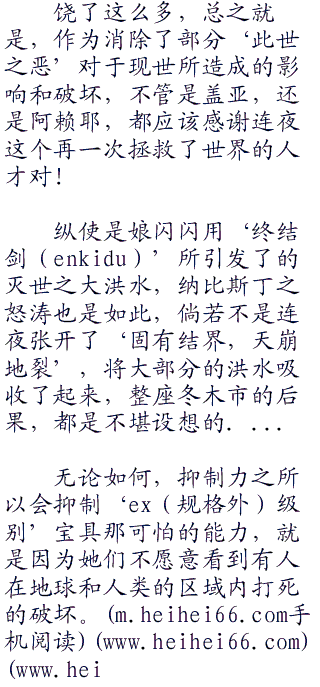 饶了这么多，总之就
是，作为消除了部分‘此世
之恶’对于现世所造成的影
响和破坏，不管是盖亚，还
是阿赖耶，都应该感谢连夜
这个再一次拯救了世界的人
才对！
纵使是娘闪闪用‘终结
剑（enkidu）’所引发了的
灭世之大洪水，纳比斯丁之
怒涛也是如此，倘若不是连
夜张开了‘固有结界，天崩
地裂’，将大部分的洪水吸
收了起来，整座冬木市的后
果，都是不堪设想的．...
无论如何，抑制力之所
以会抑制‘ex（规格外）级
别’宝具那可怕的能力，就
是因为她们不愿意看到有人
在地球和人类的区域内打死
的破坏。(m.heihei66.com手
机阅读)(www.heihei66.com)
(www.hei